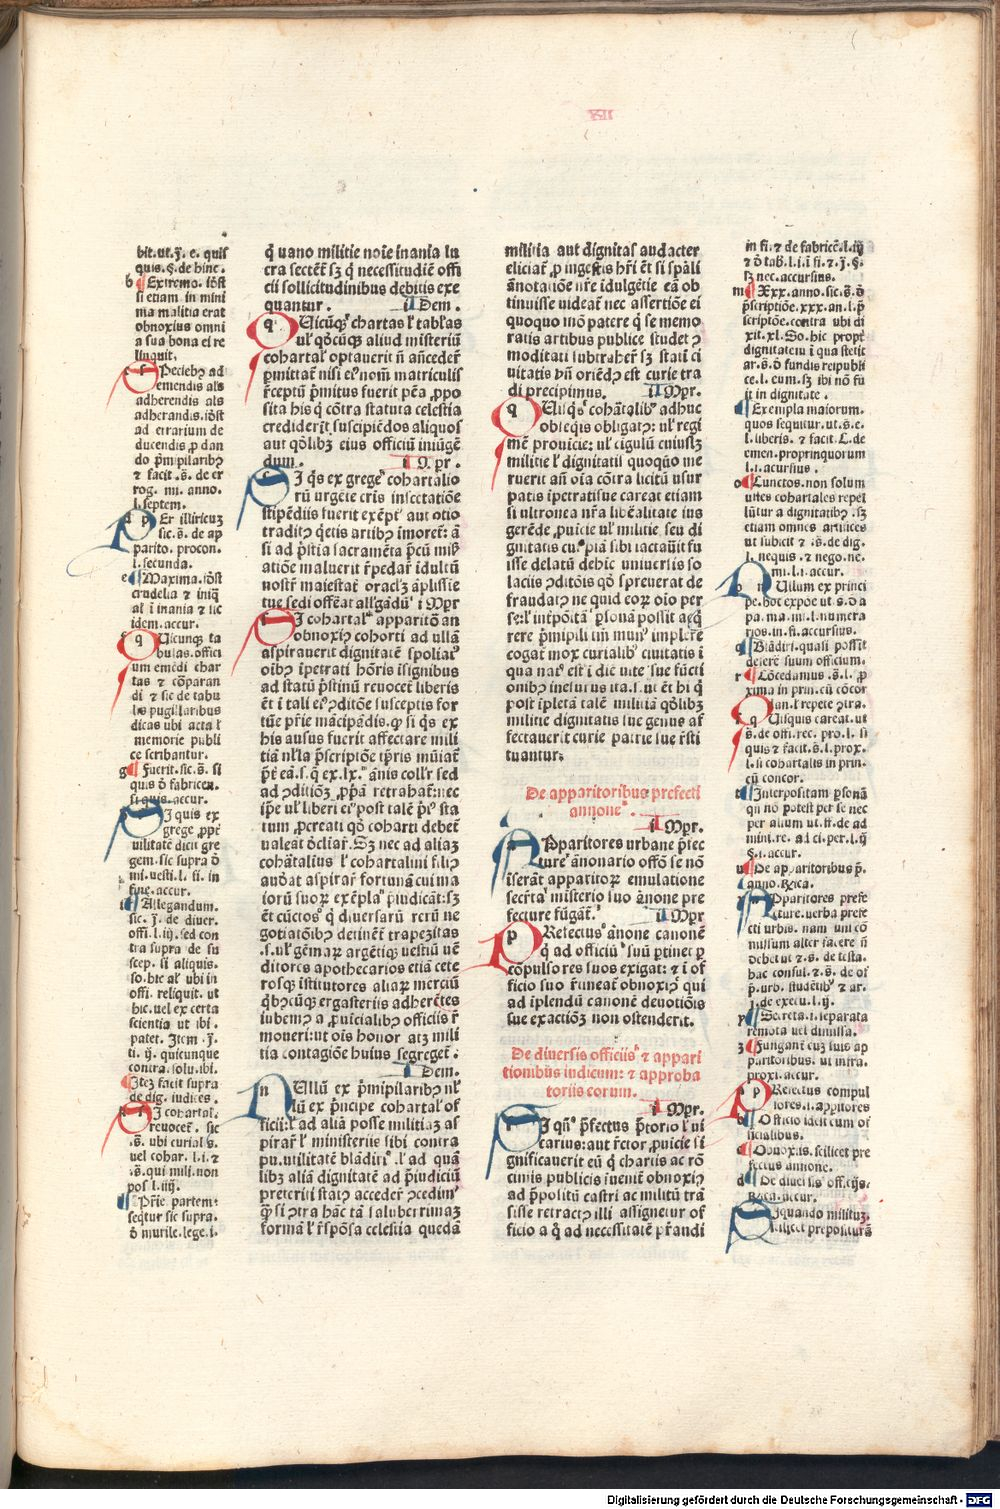 XII
bit. ut. ȷ̄. e. quis
quis. §. de hinc.
b Extremo. iđst
si etiam in mini
ma malitia erat
obnoxius omni
a sua bona ei re
linquit.
Peciebꝫ ad
emendis als
adherendis als
adherandis. iđst
ad errarium de
ducendis ꝓ dan
do p̄mipilaribꝫ
⁊ facit. s̄. de er
rog. mi. anno.
l. septem.
Er illiricuꝫ
sic. s̄. de ap
parito. procon.
l. secunda.
e Maxima. iđst
crudelia ⁊ iniq̄
al i inania ⁊ sic
idem. accur.
q Uicunqꝫ ta
bulas. offici
um emēdi char
tas ⁊ cōparan
di ⁊ sic de tabu
lis pugillaribus
dicas ubi acta ł
memorie publi
ce scribantur.
g Fuerit. sic. s̄. si
quis đ fabricen.
si quis. accur.
SI quis ex
grege ꝓpt̄
uilitatē dicit gre
gem. sic supra đ
mi. uesti. l. si. in
fine. accur.
Allegandum.
sic. ȷ̄. de diuer.
offi. l. iȷ. sed con
tra supra de su
scep. si aliquis.
so. hic al ubi in
offi. reliquit. ut
hic. uel ex certa
scientia ut ibi.
patet. Item ȷ̄.
ti. ȷ̄. quicunque
contra. solu. ibi.
Iteꝫ facit supra
de dig. iudices.
I cohortal.
reuocet̄. sic
s̄. ubi curial s̄.
uel cohor. l. i. ⁊
s̄. qui mili. non
pos. l. iiȷ.
Pr̄ie partem.
seqr̄tur sic supra.
đ murile. lege. i.
q̄ uano militie noīe inania lu
cra secter̄ sꝫ q̄ necessitudiē offi
cii sollicitudinibus debitis exe
quantur. iIdem.
q Uicūqꝫ chartas ł tablas
ul qđcūqꝫ aliud misteriū
cohortal optauerit n̄ an̄cedeř
p̄mittat nisi ei noīm matriculis
r̄ceptū p̄mitus fuerit pēa ꝓpo
sita his q̄ cōtra statuta celestia
crediderīt suscipiēdos aliquos
aut qđlibꝫ eius officiū iniūgē
dum. i I. pr.
I q̄s ex grege cohortalio
rū urgēte cris insectatiōe
stipēdiis fuerit exēpt aut otio
traditꝫ q̄etis artibꝫ imoret: ā
si ad p̄stia sacramēta p̄cū misꝫ
atiōe maluerit r̄pedař idultū
nostř maiestať oraclꝫ āplissie
tue sedi offēat allgādū i Mpr
I cohortal apparitō an
obnoxiꝫ cohorti ad ullā
aspirauerit dignitatē spoliať
oībꝫ īpetrati hōris īsignibus
ad statū p̄stinū reuocet liberis
ēt i tali eiꝰ ↄditōe susceptis for
tūe pr̄ie mācipādis. ꝙ si q̄s ex
his ausus fuerit affectare mili
tiā nlla p̄scriptōe tp̄ris mūiat̄
p̄t eā. s. q̄ ex. lx. ānis collr sed
ad ↄditiōꝫ ꝓpꝛā retrahat̄: nec
ip̄e ul liberi eiꝰ post talē p̄r sta
tum ꝓcreati qđ cohorti debet̄
ualeāt đcliař. Sꝫ nec ad aliaꝫ
cohātalius ł cohortalini filiꝫ
audeat aspirař fortunā cui ma
iorū suoꝝ exēpla p̄iudicāt: sꝫ
ēt cūctos q̄ diuersarū rerū ne
gotiatōibꝫ detinet̄ trapezitas
.s. ul gēmaꝝ argētiqꝫ uestiū uē
ditores apothecarios etiā cete
rosqꝫ īstitutores aliaꝝ merciū
q̄bꝫcūqꝫ ergasteriis adherētes
iubemꝫ a ꝓuīcialibꝫ officiis ř
moueri: ut oīs honor atqꝫ mili
tia contagiōe huius segreget̄.
i Idem.
n Ullū ex p̄mipilaribꝫ ul
lū ex p̄ncipe cohortal of
ficii: ł ad aliā posse militiaꝫ as
pirař ł ministeriis sibi contra
pu. utilitatē blādiř. ł ad quā
libꝫ aliā dignitatē ad p̄iudiciū
preteriti statꝫ accedeř ↄcedimꝫ
ꝙ si ↄtra hāc tā saluberrimaꝫ
formā ł r̄spōsa celestia quedā
militia aut dignitas audacter
eliciat̄ ꝓ ingestis hn̄i ēt si sp̄ali
ānotatiōe nr̄e idulgētie eā ob
tinuisse uideat̄ nec assertiōe ei
quoquo mō patere q̄ se memo
ratis artibus publice studet ꝫ
moditati subtraher̄ sꝫ statī ci
uitatis ūn oriēdꝫ est curie tra
di precipimus. iI Mpr.
q Uisq̄s cohātalibꝫ adhuc
obleqiis obligatꝫ: ul regi
mē prouīcie: ul cīgulū cuiuslꝫ
militie ł dignitatis quoqūo me
ruerit añ oīa cōtra licitū usur
patis īpetratisue careat etiam
si ultronea nr̄a libēalitate ius
gerēde ꝓuīcie ul militie, seu di
gnitatis cuꝫpiā sibi iactauīt fu
isse delatū dehīc uniuersis so
laciis ↄditōis qđ spreuerat de
fraudatꝫ ne quid eoꝝ oīo per
se: ł int̄pōitā ꝑsonā possit acq̄
rere p̄mipili iñ munꝰ implēre
cogat̄ mox curialibꝫ ciuitatis ī
qua natꝫ est ī die vite sue fūcti
onibꝫ inserturus ita. s. ut ēt hi q̄
post īpletā talē militiā qđlibꝫ
militie dignitatē sue genus af
fectauerīt curie patrie sue r̄sti
tuantur:
De apparitoribus prefecti
annone.
i Mpr.
Apparitores urbane p̄fec
ture ānonario offō se nō
iserāt apparitoꝝ emulatione
secr̄ta misterio suo annone pre
fecture fūgāt̄. iI Mpr
P Refectus ānone canonē
q̄ ad officiū suū ꝑtinet ꝑ
cōpulsores suos exigat: ⁊ ī of
ficio suo r̄uneat obnoxiꝫ qui
ad īplendū canonē deuotiōis
sue exactiōꝫ non ostenderit.
De diuersis officiis ⁊ appari
tionibus iudicum: ⁊ approba
toriis eorum.
i Mpr.
I qn̄ p̄fectus p̄torio ł ui
carius: aut r̄ctor ꝓuīcie si
gnificauerit eū q̄ chartis ac rō
cīnis publicis iuenit̄ obnoxiꝫ
ad p̄positū castri ac militū trā
sisse retractꝫ illi assignetur of
ficio a q̄ ad necessitatē pr̄andi
in fi. ⁊ de fabricē. l. iȷ
⁊ đ tab. l. i. ī fi. ⁊. ȷ̄. §.
sꝫ nec. accursius.
m Xxx. anno. sic. s̄. đ
p̄scriptiōe. xxx. an. l. p̄
scriptōe. contra ubi di
xit. xl. So. hic ꝓpt̄
dignitatem ī qua stetit
ar. s̄. đ fundis reipubli
ce. l. cum. sꝫ ibi nō fu
it in dignitate.
Exempla maiorum.
quos sequitur. ut. s̄. e.
l. liberis. ⁊ facit C. de
emen. proprinquorum
l. i. acursius.
o Cunctos. non solum
ūtes cohortales repel
lūtur a dignitatibꝫ. sꝫ
etiam omnes artifices
ut subicit ⁊. s̄. de dig.
l. nequis. ⁊ nego. ne.
mi. l. i. accur.
n Ullum ex princi
pe. hoc expōe ut. s̄. đ a
pa. ma. mi. l. numera
rios. in. fi. accursius.
q Blādiri. quasi possit
deserē suum officium.
r Cōcedamus. s̄. l. ꝓ
xima in prin. cū cōcor
dan. ł repete ↄtra.
q Uisquis careat. ut
s̄. de offi. rec. pro. l. si
quis ⁊ facit. s̄. l. prox.
l. si cohortalis in prin.
cū concor.
t Interpositam ꝑsonā
qū nō potest per se nec
per alium ut. ff. de ad
mini. re. ad ci. per. l. ȷ̄
§. i. accur.
u De apparitoribus p̄.
anno. Rꝫica.
Apparitores prefe
cture. uerba prefe
cti urbis. nam uni cō
missum alter facere n̄
debet ut ⁊. s̄. de testa.
hac consul. ⁊. s̄. de of
p̄. urb. studētibꝫ ⁊ ar.
ȷ̄. de execu. l. ȷ̄.
y Secreta. i. separata
remota uel diuisa.
z Fungant̄ cuꝫ suis ap
paritoribus. ut infra.
proxi. accur.
P Refectus compul
sores. i. appitores
b Officio idcit cum of
ficialibus.
c Obnoxiis. scilicet pre
fectus annone.
d De diuersis off. iȷs.
Rꝫica. accur.
S Iquando milituꝫ.
scilicet prepositurā
Digitalisierung gefördert durch die Deutsche Forschungsgemeinschaft - DFG